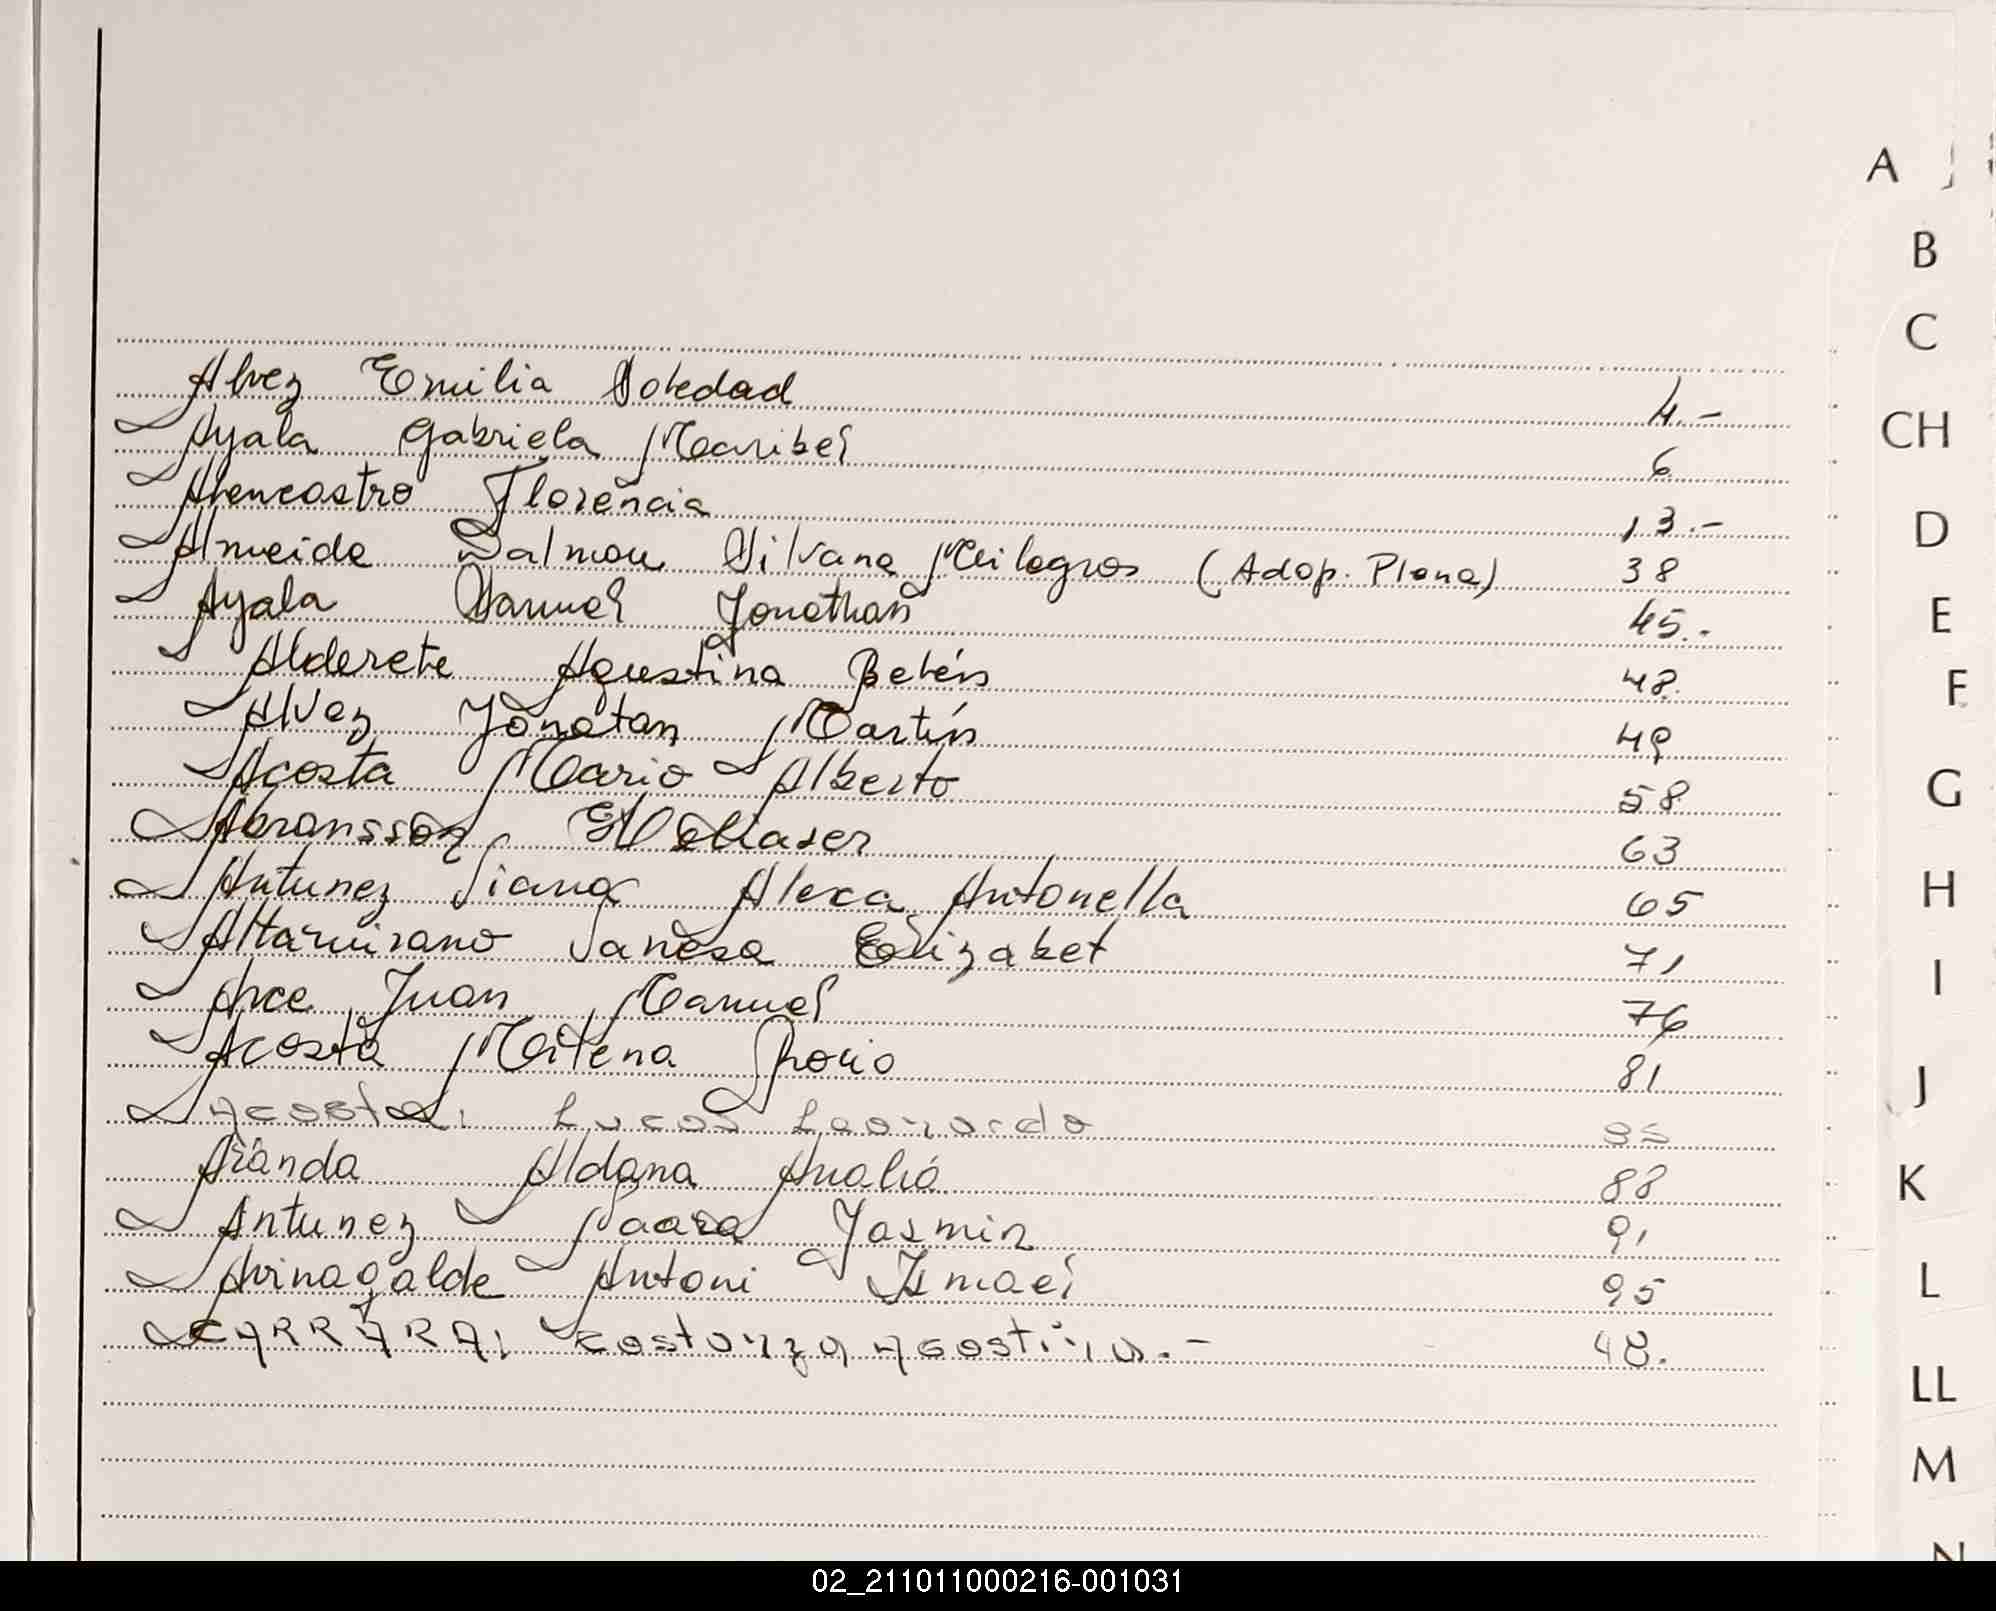 Alvez Emilia Soledad 4.-
Ayala Gabriela Maribel 6
Alencastro Florencia 13.-
Almeida Dalmau Silvana Milagros (Adop. Plena) 38
Ayala Samuel Jonathan 45.-
Alderete Agustina Belén 48.
Alvez Jonatan Martín 49
Acosta Mario Alberto 58.
Abransson 63
Antunez Alexa Antonella 65
Altamirano Vanesa Elizabet 71
Arce Juan Manuel 76
Acosta Maitena Rocio 81
Acosta, Lucas Leonardo 85
Aranda Aldana Analiá 88
Antunez Naara Jasmin 91
Arinagalde Antoni Ismael 95
CARRARA, Costanza Agostina.- 48.
A
B
C
CH
D
E
F
G
H
I
J
K
L
LL
M
N
02_211011000216-001031